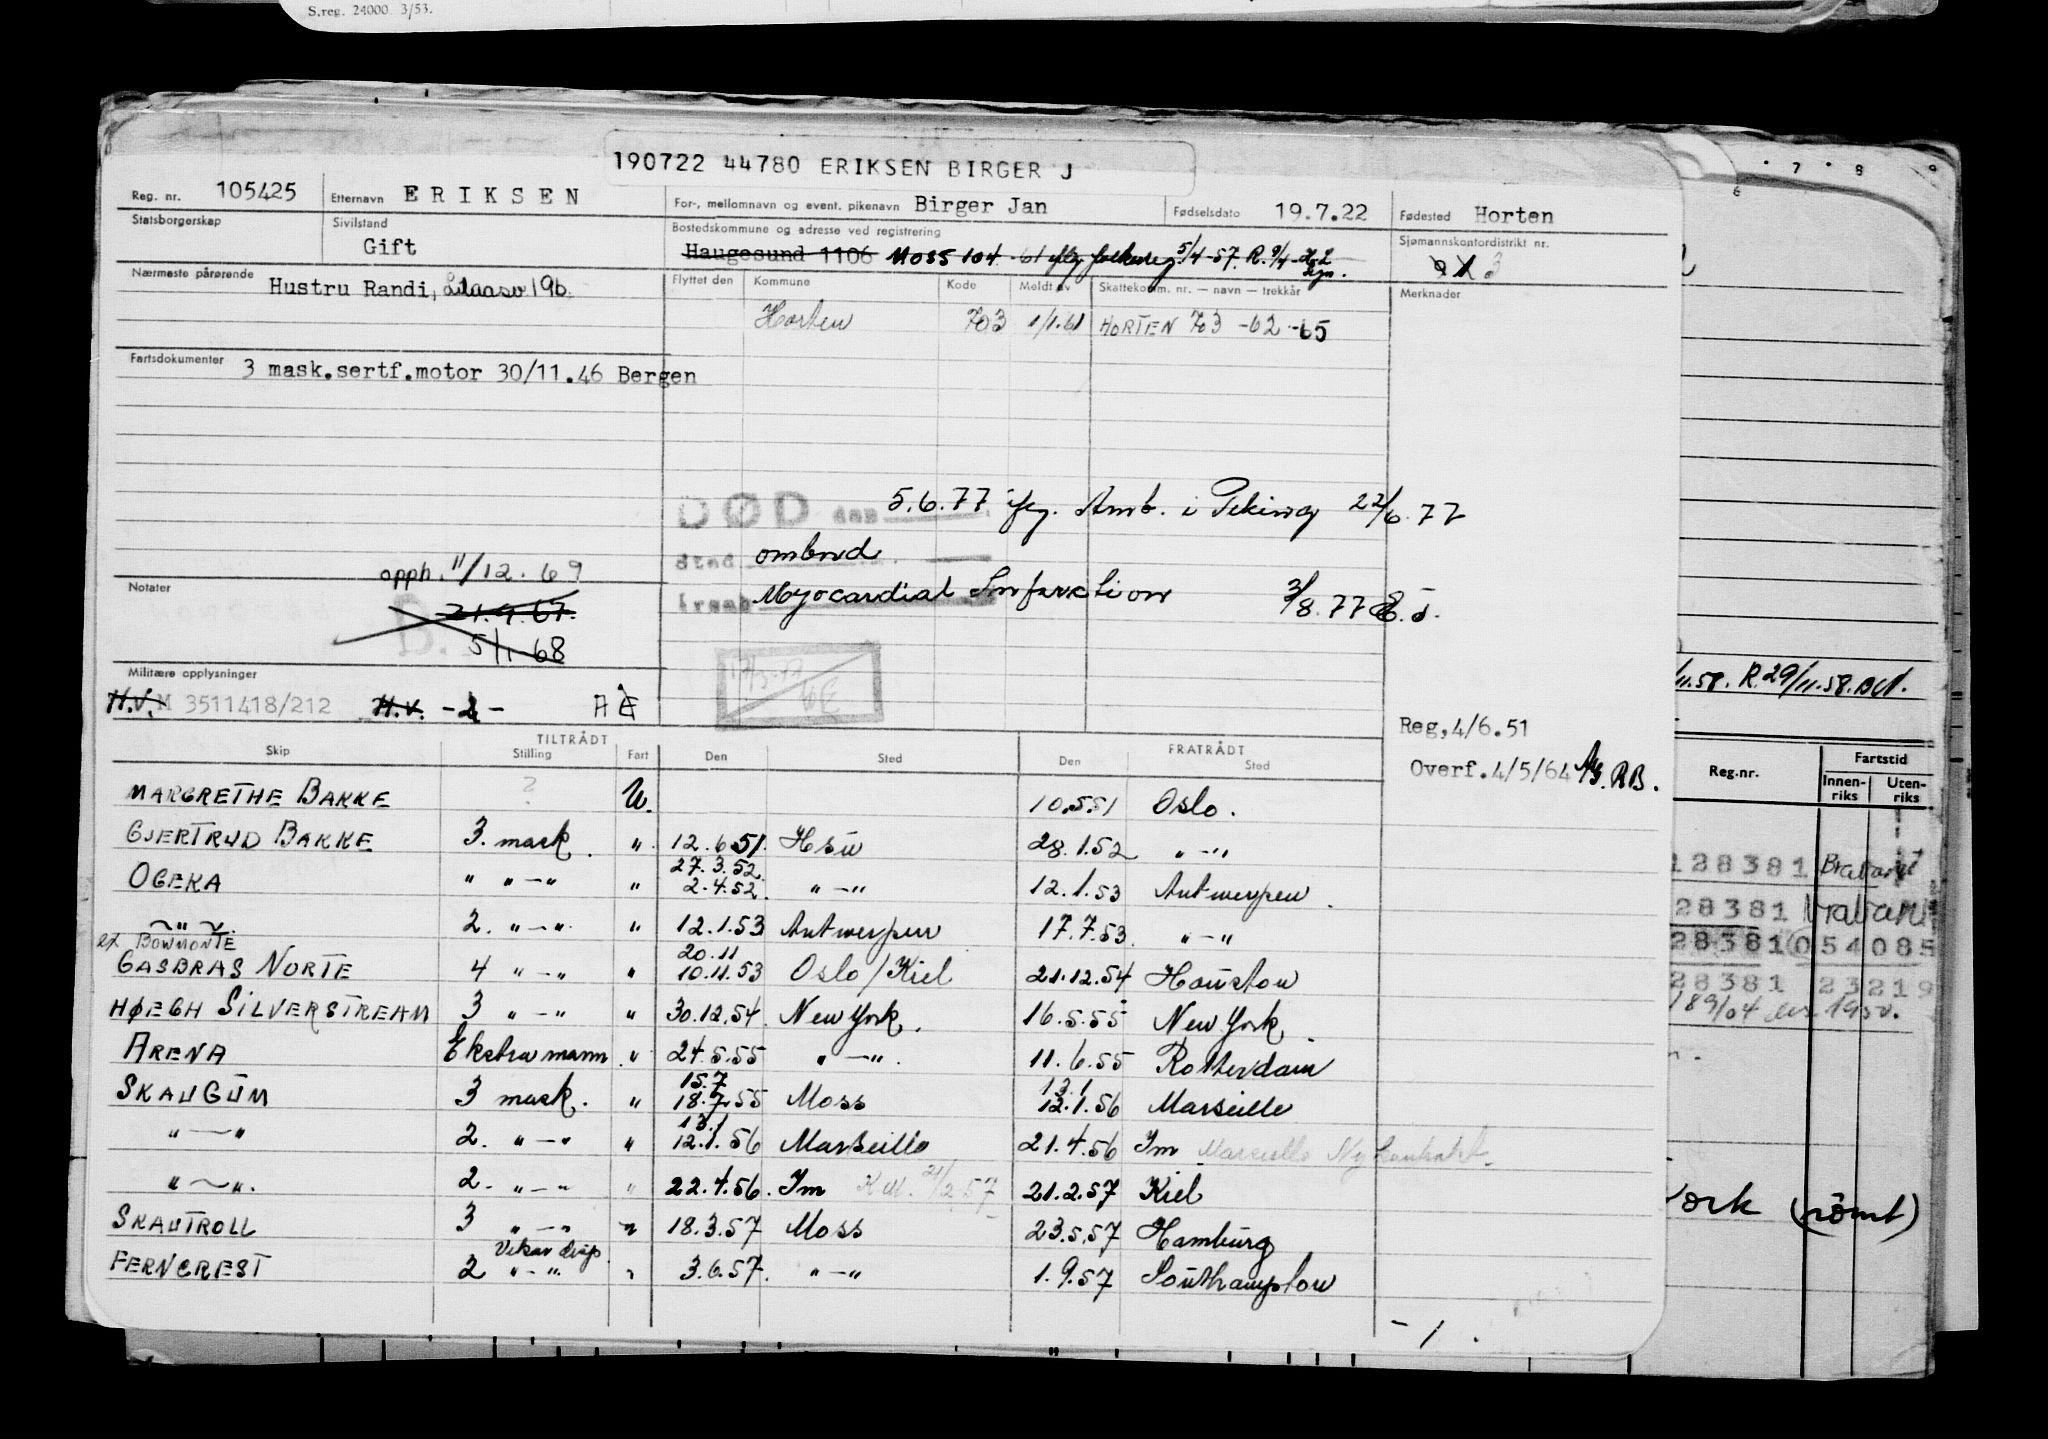 S.reg. 24000 3/53.
190722 44780 ERIKSEN BIRGER J
Reg. nr. 105425 Etternavn ERIKSEN For-, mellomnavn og event. pikenavn Birger Jan Fødselsdato 19.7.22 Fødested Horten
Statsborgerskap Sivilstand Gift Bostedskommune og adresse ved registrering Sjømannskontordistrikt nr.
Haugesund 1106 MOSS 104 -61 iflg folkereg 5/4-57. R. 9/4- 3
Nærmeste pårørende Hustru Randi, 19b. Flyttet den Kommune Kode Meldt av Skattekomm. nr. — navn — trekkår Merknader
Horten 703 1/1.61 HORTEN 703 -62 -65
Fartsdokumenter 3 mask.sertf.motor 30/11.46 Bergen
DØD den 5.6.77 iflg. Amb. i Peking 22/6.77
sted ombord
opph. 11/12.69
Notater årsak Myocardial Infarction 3/8.77 E.J.
B. 21.9.67.
5/1-68
Militære opplysninger
H.V. M 3511418/212 H.V. -2-
Reg,4/6.51
Overf.4/5/64 RB.
TILTRÅDT FRATRÅDT
Skip Stilling Fart Den Sted Den Sted
MARGRETHE BAKKE ? U. 10.5.51 Oslo.
GJERTRUD BAKKE 3. mask. " 12.6.51. Hsu 28.1.52 " — "
27.3.52.
OGEKA " " — " " 2.4.52. " — " 12.1.53 Antwerpen.
— " — 2. " — " " 12.1.53 Antwerpen 17.7.53. " — "
ex BOWMONTE 20.11
GASBRAS NORTE 4 " — " " 10.11.53 Oslo / Kiel 21.12.54 Houston
HØEGH SILVERSTREAM 3 " — " " 30.12.54. New York. 16.5.55 New York.
ARENA Ekstra mann. " 24.5.55 " — ". 11.6.55 Rotterdam
15.7 13.1
SKAUGUM 3 mask. " 18.7.55 Moss 12.1.56 Marseille
13.1
" — " 2. " — " " 12.1.56 Marseille 21.4.56 Im Marseille Ny kontrakt.
" — ". 2. " — " " 22.4.56. Im Kiel 21/2.57 21.2.57 Kiel
SKAUTROLL 3 " — " " 18.3.57 Moss 23.5.57 Hamburg
Vikar disp.
FERNCREST 2 " — " " 3.6.57. " — " 1.9.57 Southampton
-1.
6 7 8 9
/11.58. R.29/11.58.
Reg.nr. Fartstid
Innen-riks Uten-riks
128381 Brabant
28381 Brabant
28381 054085
28381 23219
189/04 1950.
York (rømt)